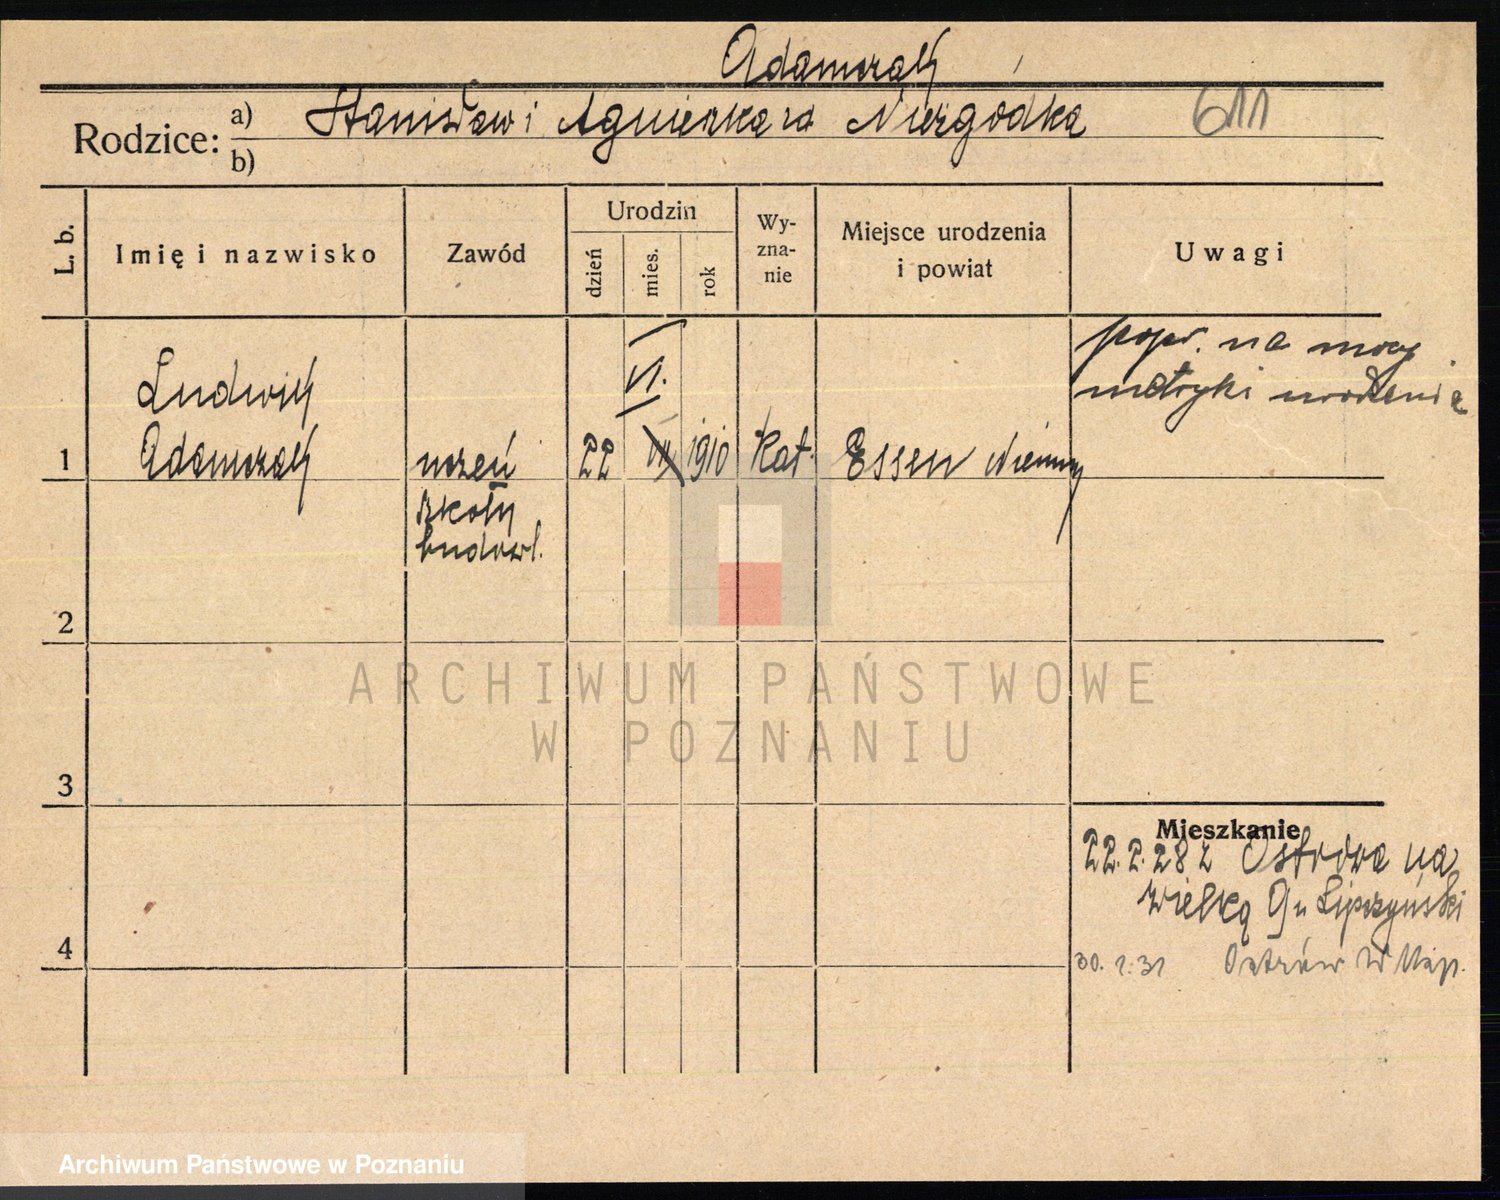 Adamczak
Rodzice: a) Stanisław i Agnieszka zd Niezgodka 611
b)
L. b. Imię i nazwisko Zawód Urodzin dzień mies. rok Wy-zna-nie Miejsce urodzenia i powiat Uwagi
popr. na mocy
metryki urodzenia
Ludwik VI.
1 Adamczak uczeń 22 VII 1910 Kat. Essen Niemcy
szkoły
budowl.
2
ARCHIWUM PAŃSTWOWE
W POZNANIU
3
Mieszkanie
22.2.28 z Ostrowa na
Wielką 9 u Lipczyński
4
30.1.31 Ostrów Wlkp.
Archiwum Państwowe w Poznaniu